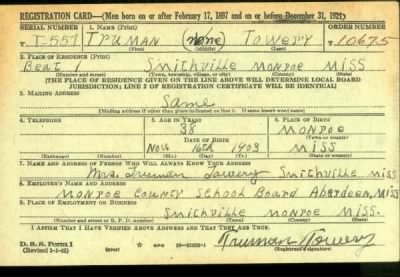 REGISTRATION CARD—(Men born on or after February 17, 1897 and on or before December 31, 1921)
SERIAL NUMBER 1. NAME (Print) ORDER NUMBER
T-557 TRUMAN (none) TOWERY 10675
(First) (Middle) (Last)
2. PLACE OF RESIDENCE (Print)
Beat 1 Smithville MONROE MISS
(Number and street) (Town, township, village, or city) (County) (State)
[THE PLACE OF RESIDENCE GIVEN ON THE LINE ABOVE WILL DETERMINE LOCAL BOARD
JURISDICTION; LINE 2 OF REGISTRATION CERTIFICATE WILL BE IDENTICAL]
3. MAILING ADDRESS
Same
[Mailing address if other than place indicated on line 2. If same insert word same]
4. TELEPHONE 5. AGE IN YEARS 6. PLACE OF BIRTH
38 MONROE
DATE OF BIRTH (Town or county)
Nov. 16th 1903 MISS
(Exchange) (Number) (Mo.) (Day) (Yr.) (State or country)
7. NAME AND ADDRESS OF PERSON WHO WILL ALWAYS KNOW YOUR ADDRESS
Mrs. Truman Towery Smithville Miss
8. EMPLOYER'S NAME AND ADDRESS
MONROE COUNTY SCHOOL BOARD ABERDEEN, MISS
9. PLACE OF EMPLOYMENT OR BUSINESS
Smithville MONROE MISS.
(Number and street or R. F. D. number) (Town) (County) (State)
I AFFIRM THAT I HAVE VERIFIED ABOVE ANSWERS AND THAT THEY ARE TRUE.
D. S. S. Form 1
(Revised 1-1-42) GPO Truman Towery
(Registrant's signature)